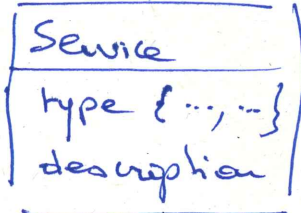 Service
type {..., ...}
description